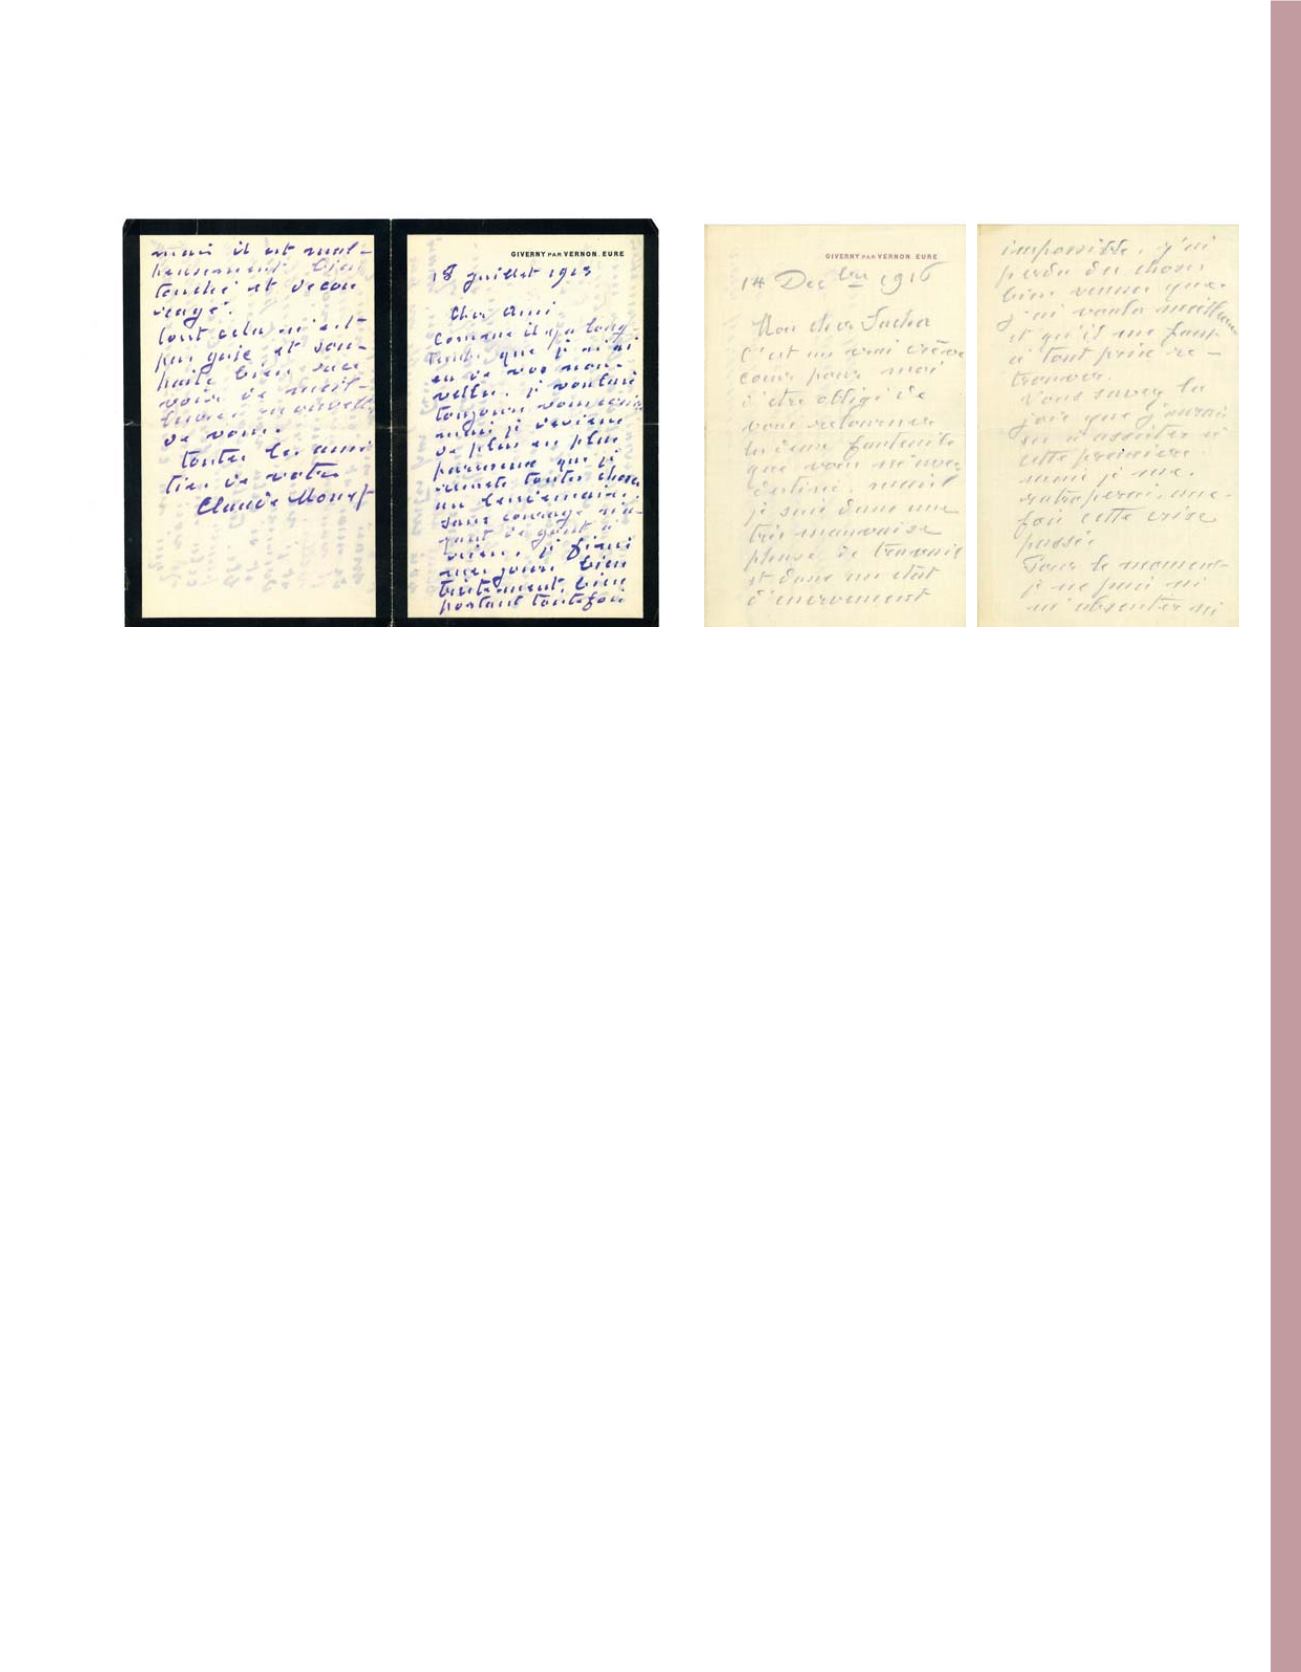 mais il est mal-
heureusement bien
touché et décou
ragé.
tout cela n'est
pas gaie et sou-
haite bien rece
voir de meil-
leures nouvelles
de vous.
toutes les ami
tiés de votre
Claude Monet
GIVERNY PAR VERNON. EURE
18 juillet 1913
Cher ami
Comme il y a long
temps que je n'ai
eu de vos nou-
velles. je voulais
toujours vous écrire
mais je deviens
de plus en plus
paresseux que je
remets toutes choses
au lendemain.
sans courage
gout à
rien. je
mes jours bien
tristement, bien
portant toutefois
GIVERNY PAR VERNON. EURE
14 Decbre 1916
Mon cher Sacha
C'est un vrai crève
coeur pour moi
d'être obligé de
vous retourner
fauteuils
que vous m'avez
destiné. mais
je suis dans une
très mauvaise
phase de travail
et dans un état
d'enervement
impossible. j'ai
perdu des choses
bien venues que
j'ai voulu meilleures
et qu'il me faut
à tout prix re-
trouver.
Vous savez la
joie que j'aurais
eu d'assister à
cette première
mais je me
ratraperai une
fois cette crise
passée
Pour le moment
je ne puis ni
m'absenter ni